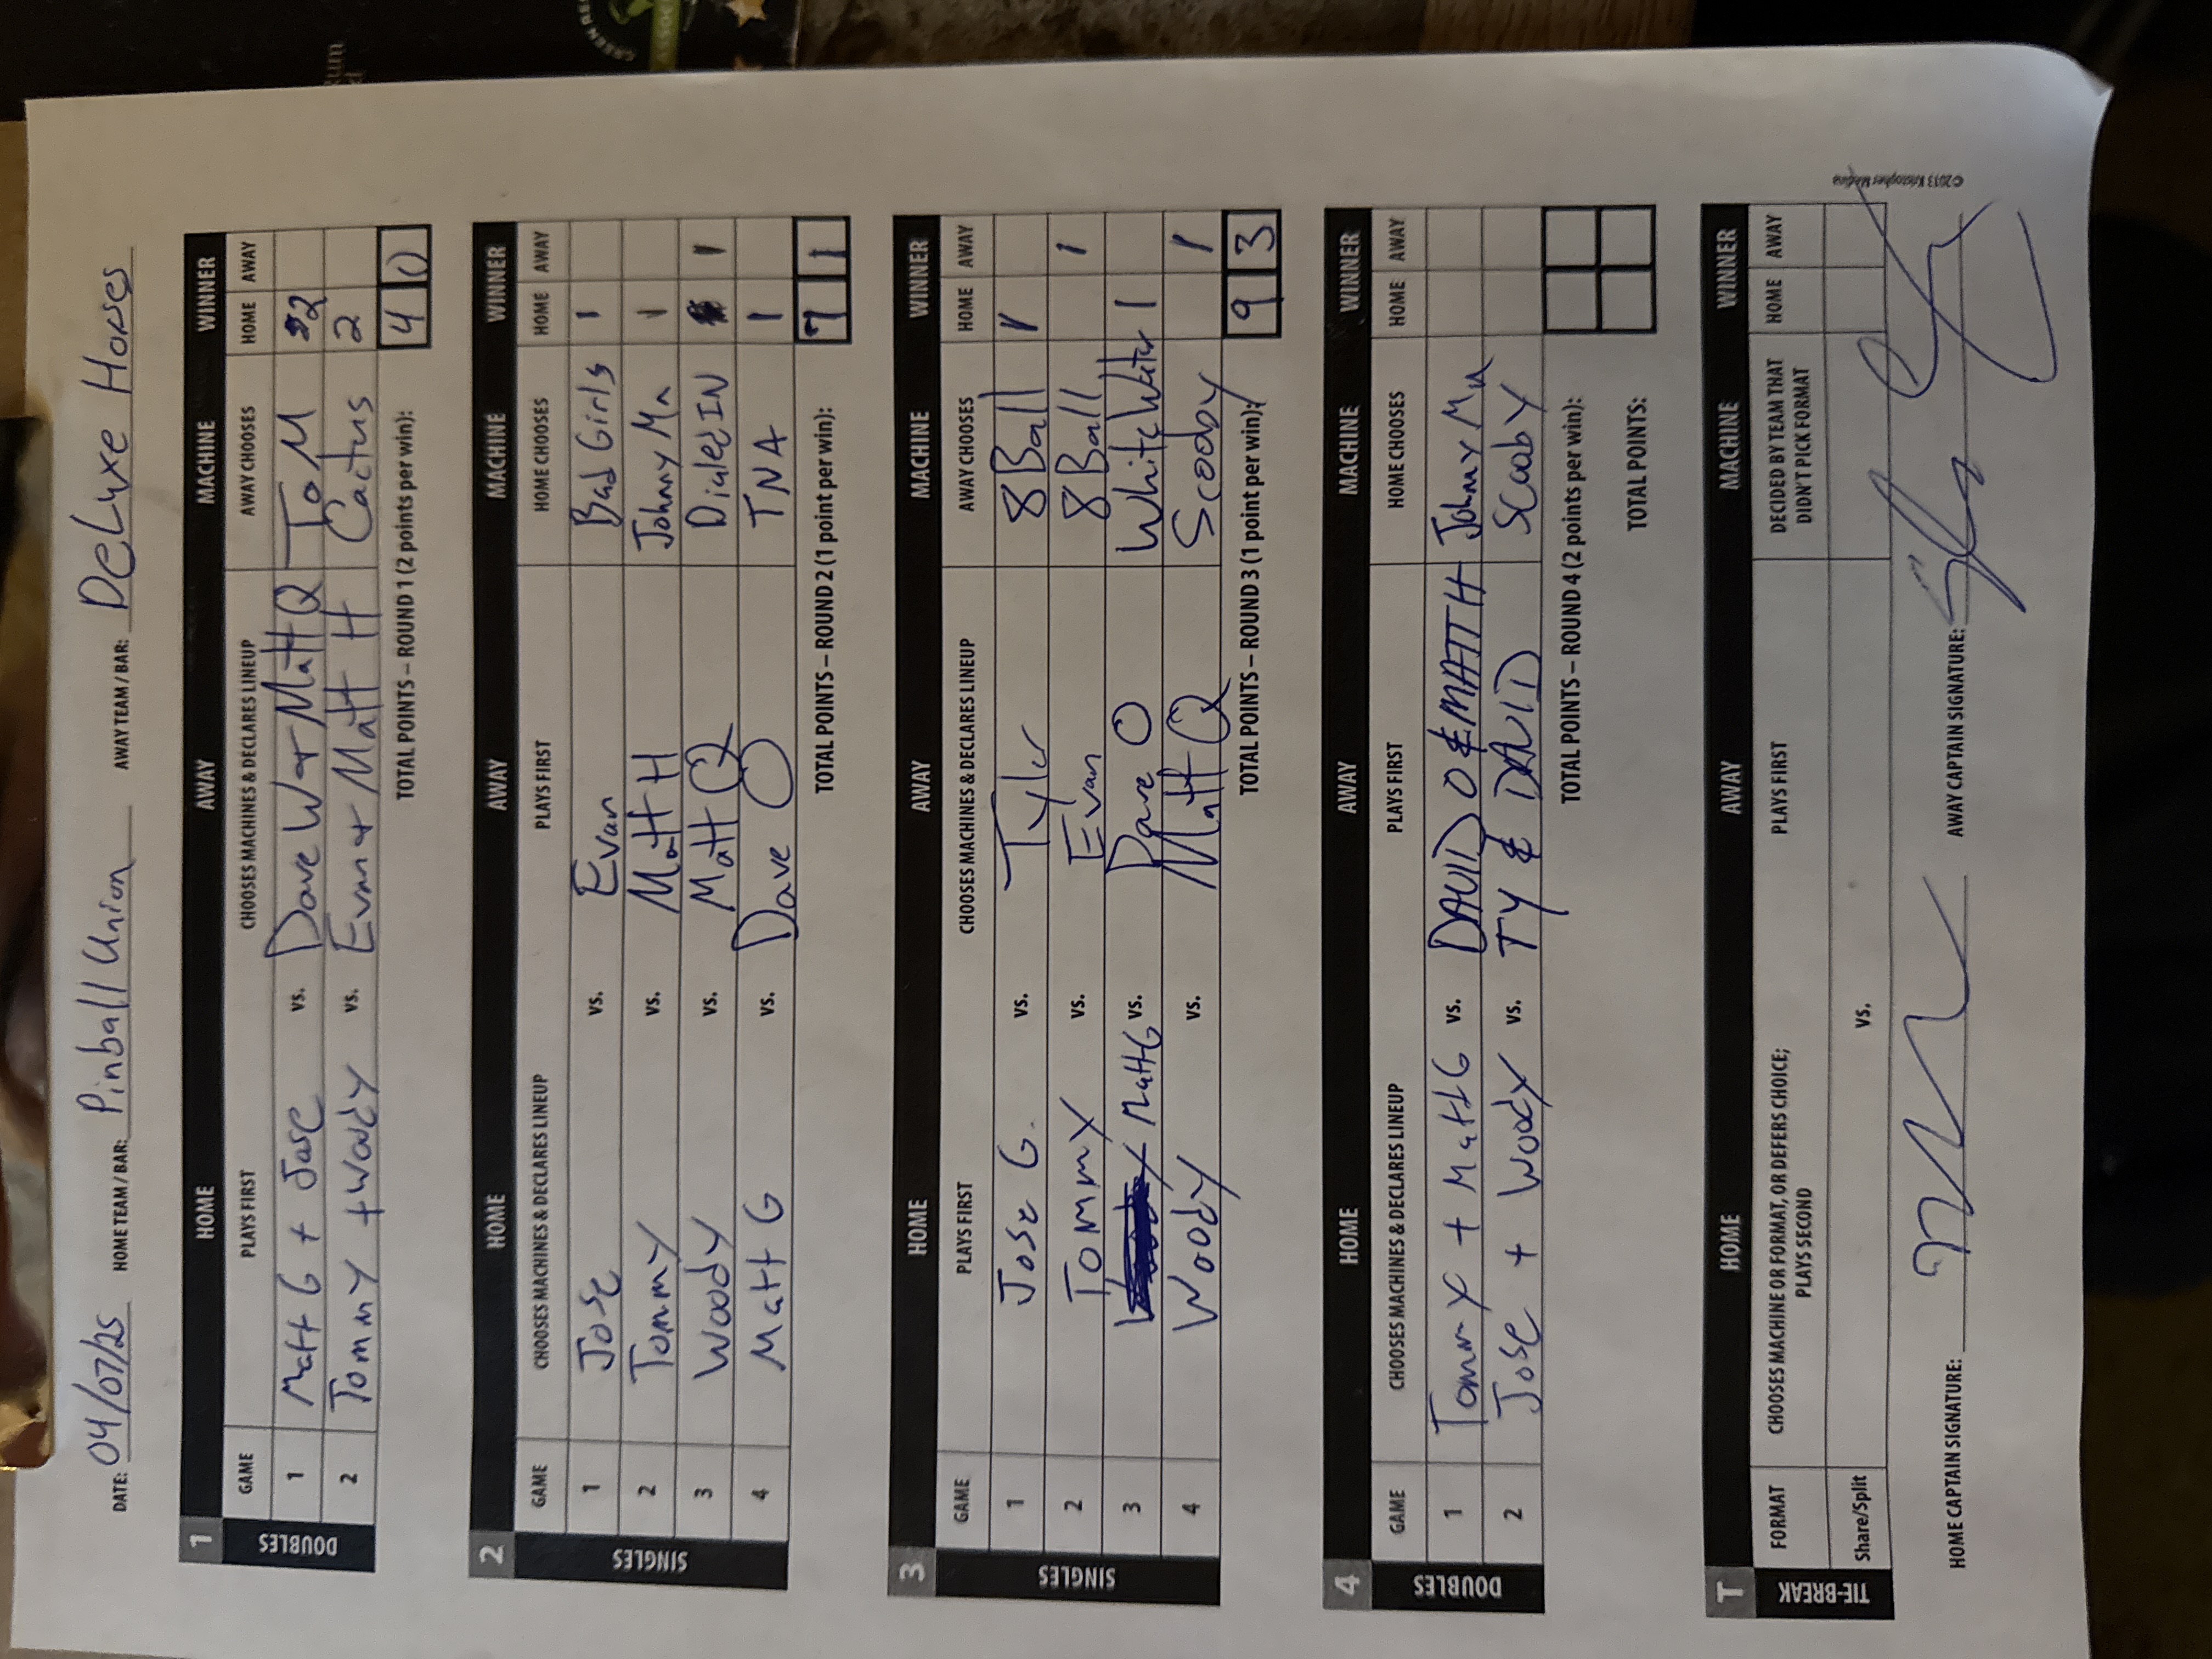 DATE: 04/07/25 HOME TEAM / BAR: Pinball Union AWAY TEAM / BAR: DeLuxe Horses
1 HOME AWAY MACHINE WINNER
GAME PLAYS FIRST CHOOSES MACHINES & DECLARES LINEUP AWAY CHOOSES HOME AWAY
DOUBLES
1 Matt G + Jose vs. Dave W + Matt Q ToM 2
2 Tommy + Woody vs. Evan + Matt H Cactus 2
TOTAL POINTS – ROUND 1 (2 points per win): 4 0
2 HOME AWAY MACHINE WINNER
GAME CHOOSES MACHINES & DECLARES LINEUP PLAYS FIRST HOME CHOOSES HOME AWAY
SINGLES
1 Jose vs. Evan Bad Girls 1
2 Tommy vs. Matt H Johnny Mn 1
3 Woody vs. Matt Q Dialed IN 1
4 Matt G vs. Dave O TNA 1
TOTAL POINTS – ROUND 2 (1 point per win): 7 1
3 HOME AWAY MACHINE WINNER
GAME PLAYS FIRST CHOOSES MACHINES & DECLARES LINEUP AWAY CHOOSES HOME AWAY
SINGLES
1 Jose G. vs. Tyler 8 Ball 1
2 Tommy vs. Evan 8 Ball 1
3 Matt G vs. Dave O White Water 1
4 Woody vs. Matt Q Scooby 1
TOTAL POINTS – ROUND 3 (1 point per win): 9 3
4 HOME AWAY MACHINE WINNER
GAME CHOOSES MACHINES & DECLARES LINEUP PLAYS FIRST HOME CHOOSES HOME AWAY
DOUBLES
1 Tommy + Matt G vs. DAVID O & MATT H Johnny Mn
2 Jose + Woody vs. TY & DAVID Scooby
TOTAL POINTS – ROUND 4 (2 points per win):
TOTAL POINTS:
T HOME AWAY MACHINE WINNER
FORMAT CHOOSES MACHINE OR FORMAT, OR DEFERS CHOICE; PLAYS FIRST DECIDED BY TEAM THAT HOME AWAY
PLAYS SECOND DIDN'T PICK FORMAT
TIE-BREAK
Share/Split vs.
©2013 Kristopher Medina
HOME CAPTAIN SIGNATURE: AWAY CAPTAIN SIGNATURE: